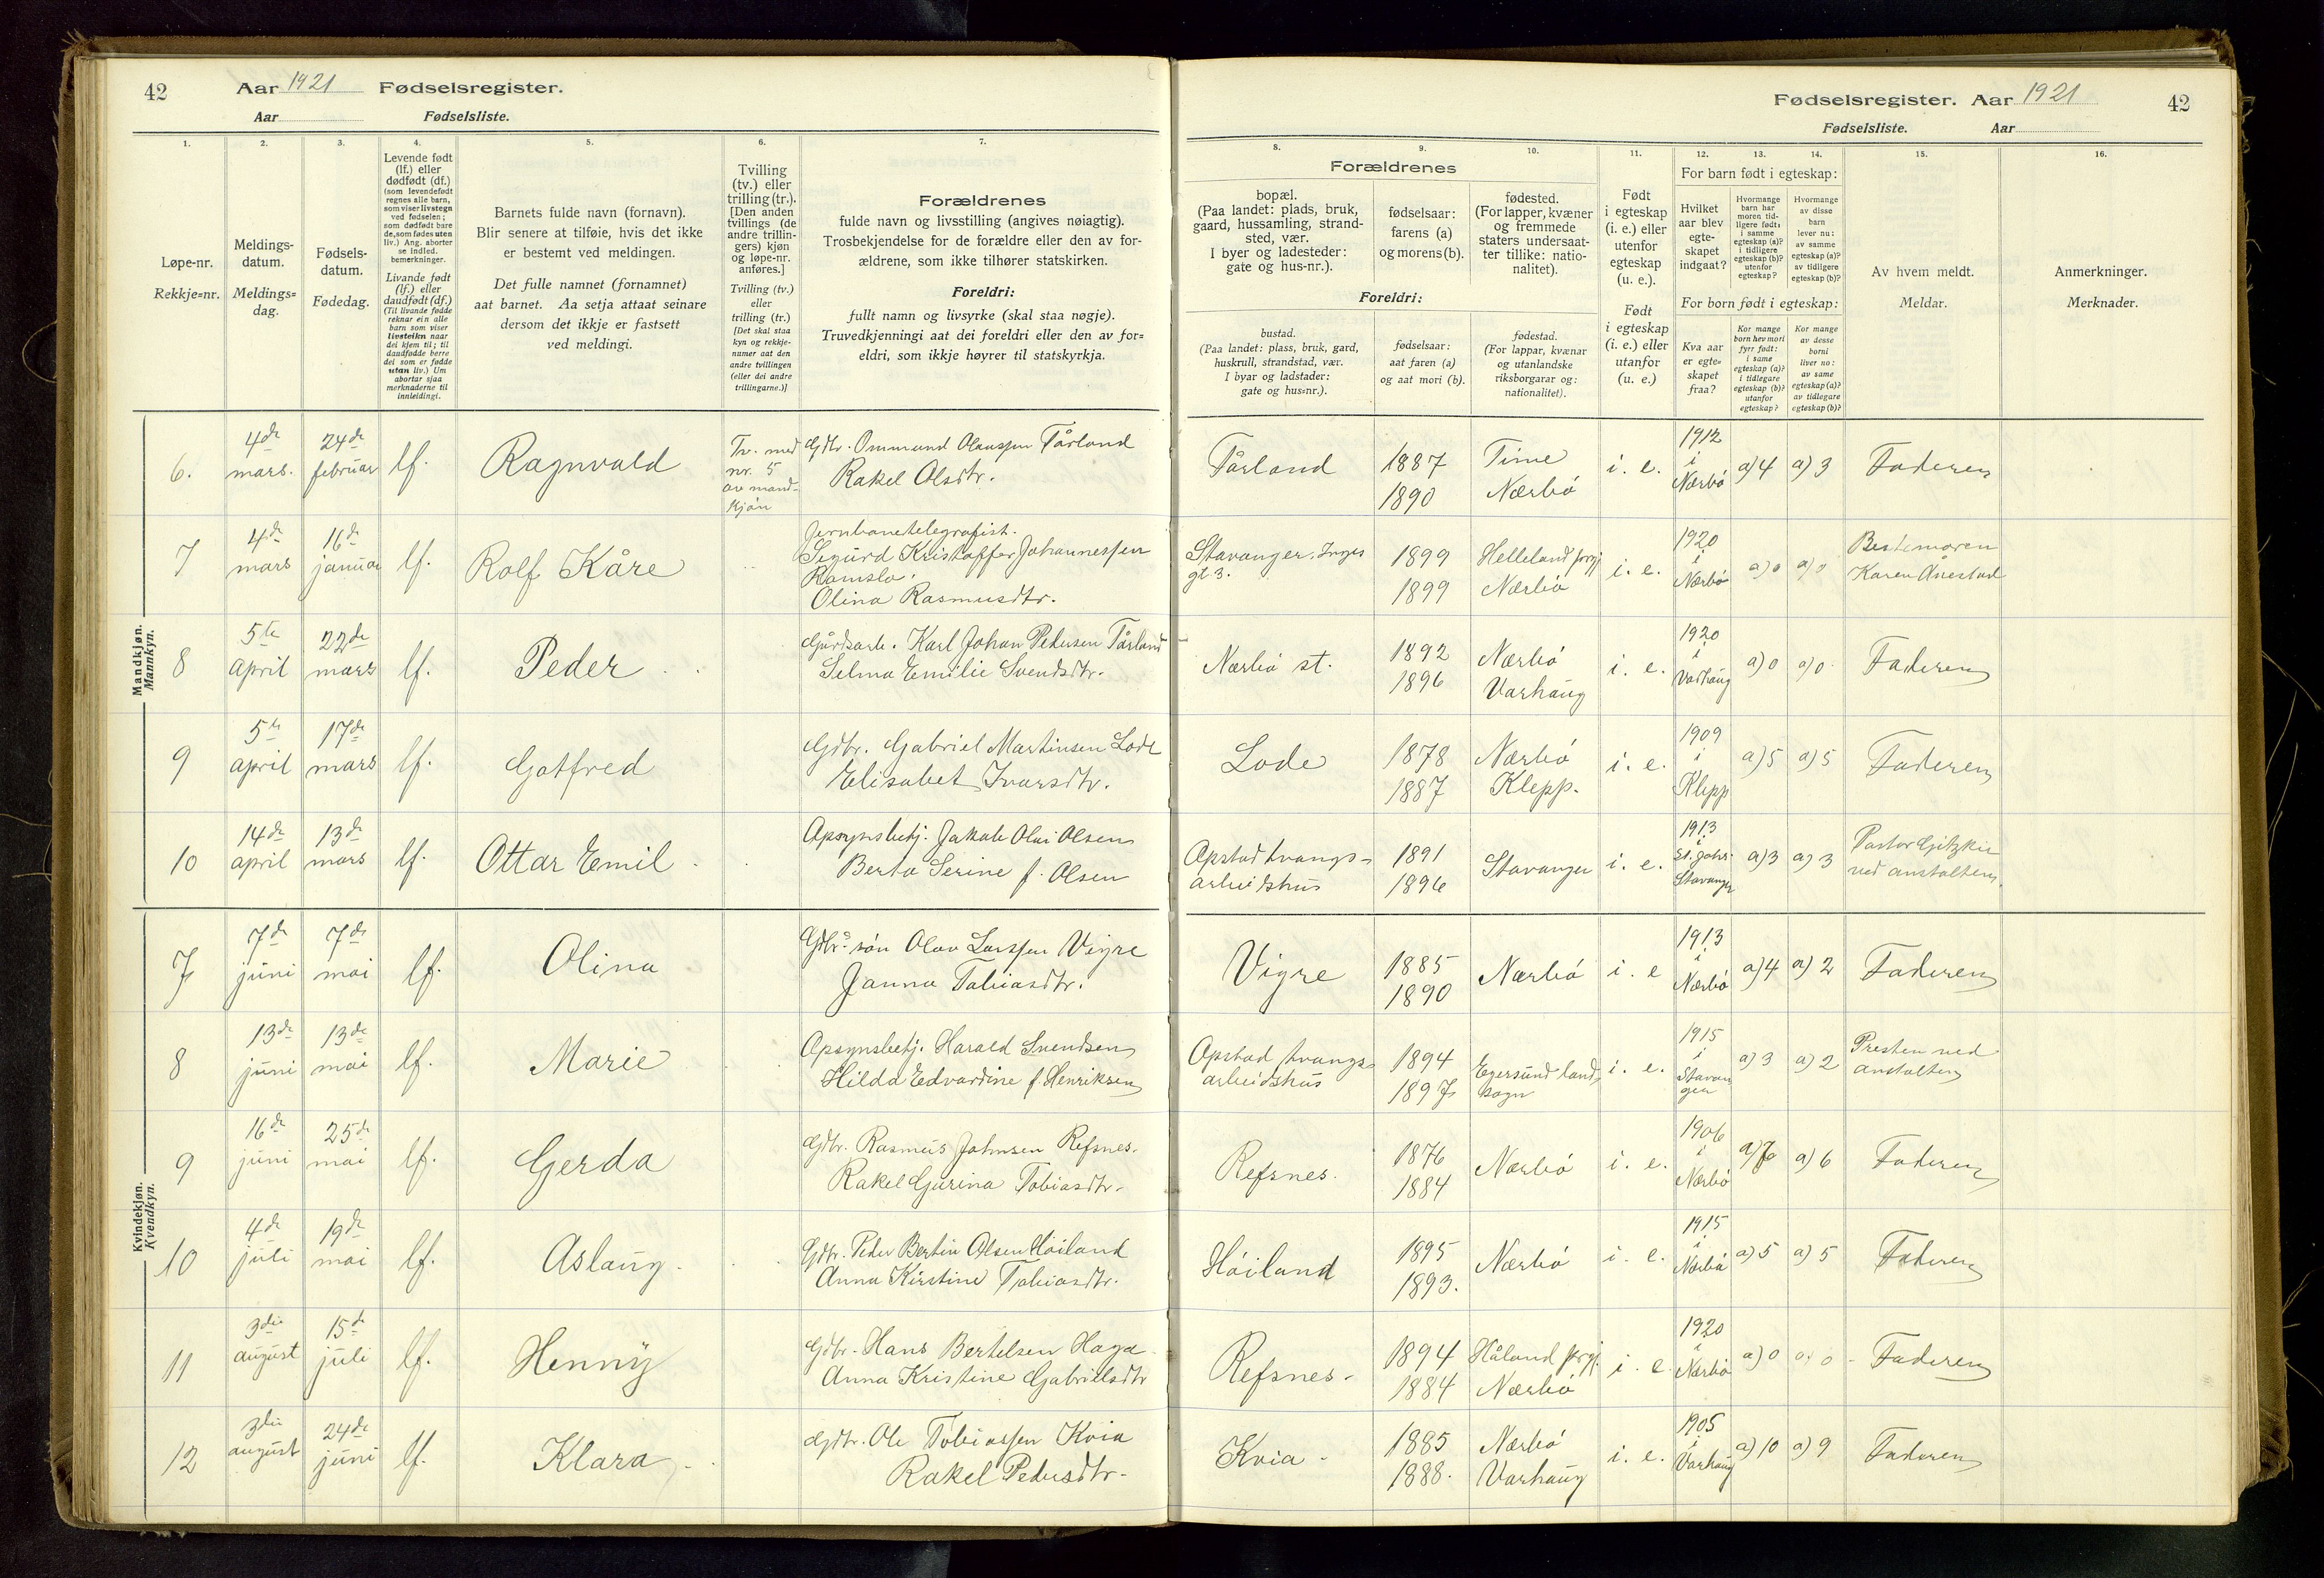 42
Aar 1921 Fødselsregister.
Aar Fødselsliste.
Fødselsregister. Aar 1921
42
Fødselsliste. Aar
1. 2. 3. 4. 5. 6. 7. 8. 9. 10. 11. 12. 13. 14. 15. 16.
Løpe-nr.
Rekkje=nr.
Meldings-
datum.
Meldings=
dag.
Fødsels-
datum.
Fødedag.
Levende født
(lf.) eller
dødfødt (df.)
(som levendefødt
regnes alle barn,
som viser livstegn
ved fødselen;
som dødfødt bare
de, som fødes uten
liv.) Ang. aborter
se indled.
bemerkninger.
Livande født
(lf.) eller
daudfødt (df.)
(Til livande fødde
reknar ein alle
barn som viser
livsteikn naar
dei kjem til; til
daudfødde berre
dei som er fødde
utan liv.) Um
abortar sjaa
merknaderne til
innleidingi.
Barnets fulde navn (fornavn).
Blir senere at tilføie, hvis det ikke
er bestemt ved meldingen.
Det fulle namnet (fornamnet)
aat barnet. Aa setja attaat seinare
dersom det ikkje er fastsett
ved meldingi.
Tvilling
(tv.) eller
trilling (tr.).
[Den anden
tvillings (de
andre trillin-
gers) kjøn
og løpe-nr.
anføres.]
Tvilling (tv.)
eller
trilling (tr.)
[Det skal staa
kyn og rekkje-
numer aat den
andre tvillingen
(eller dei andre
trillingarne.)]
Forældrenes
fulde navn og livsstilling (angives nøiagtig).
Trosbekjendelse for de forældre eller den av for-
ældrene, som ikke tilhører statskirken.
Foreldri:
fullt namn og livsyrke (skal staa nøgje).
Truvedkjenningi aat dei foreldri eller den av for=
eldri, som ikkje høyrer til statskyrkja.
Forældrenes
bopæl.
(Paa landet: plads, bruk,
gaard, hussamling, strand-
sted, vær.
I byer og ladesteder:
gate og hus-nr.).
fødselsaar:
farens (a)
og morens (b).
fødested.
(For lapper, kvæner
og fremmede
staters undersaat-
ter tillike: natio-
nalitet).
Foreldri:
bustad.
(Paa landet: plass, bruk, gard,
huskrull, strandstad, vær.
I byar og ladstader:
gate og hus=nr.).
fødselsaar:
aat faren (a)
og aat mori (b).
fødestad.
(For lappar, kvænar
og utanlandske
riksborgarar og:
nationalitet).
Født
i egteskap
(i. e.) eller
utenfor
egteskap
(u. e.).
Født
i egteskap
(i. e.) eller
utanfor
egteskap
(u. e.)
For barn født i egteskap:
Hvilket
aar blev
egte-
skapet
indgaat?
Hvormange
barn har
moren tid-
ligere født:
i samme
egteskap (a)?
i tidligere
egteskap (b)?
utenfor
egteskap?
Hvormange
av disse
barn
lever nu:
av samme
egteskap (a)?
av tidligere
egteskap (b)?
For born født i egteskap:
Kva aar
er egte=
skapet
fraa?
Kor mange
born hev mori
fyrr født:
i same
egteskap (a)?
i tidlegare
egteskap (b)?
utanfor
egteskap?
Kor mange
av desse
borni
liver no:
av same
egteskap (a)?
av tidlegare
egteskap (b)?
Av hvem meldt.
Meldar.
Anmerkninger.
Merknader.
Mandkjøn.
Mannkyn.
6. 4de mars. 24de februar lf. Ragnvald Tv. med nr. 5 av mand-kjøn Gdbr. Ommund Olaussen Tårland
Rakel Olsdtr. Tårland 1887 1890 Time Nærbö i. e. 1912 i Nærbö a) 4 a) 3 Faderen
7 4de mars 16de januar lf. Rolf Kåre Jernbanetelegrafist.
Sigurd Kristoffer Johannessen
Ramslo.
Olina Rasmusdtr. Stavanger, Inges gt 3. 1899 1899 Helleland prgj Nærbö i. e. 1920 i Nærbö a) 0 a) 0 Bestemoren Karen Ånestad
8 5te april 22de mars lf. Peder Gårdsarb. Karl Johan Pedersen Tårland
Selma Emilie Svendsdtr. Nærbö st. 1892 1896 Nærbö Varhaug i. e. 1920 i Varhaug a) 0 a) 0 Faderen
9 5te april 17de mars lf. Gotfred Gdbr. Gabriel Martinsen Lode
Elisabet Ivarsdtr. Lode 1878 1887 Nærbö Klepp. i. e. 1909 i Klepp a) 5 a) 5 Faderen
10 14de april 13de mars lf. Ottar Emil Opsynsbetj. Jakob Olai Olsen
Berta Serine f. Olsen Opstad tvangs-arbeidshus 1891 1896 Stavanger i. e. 1913 St. Johs. Stavanger a) 3 a) 3 Pastor ved anstalten.
Kvindekjøn.
Kvendkyn.
7 7de juni 7de mai lf. Olina Gdbr.s sön Olav Larssen Vigre
Janna Tobiasdtr. Vigre 1885 1890 Nærbö i. e 1913 i Nærbö a) 4 a) 2 Faderen
8 13de juni 13de mai lf. Marie Opsynsbetj. Harald Svendsen
Hilda Edvardine f. Henriksen Opstad tvangs-arbeidshus 1894 1897 Egersund lands sogn i. e. 1915 i Stavanger a) 3 a) 2 Presten ved anstalten
9 16de juni 25de mai lf. Gerda Gdbr. Rasmus Johnsen Refsnes.
Rakel Gurina Tobiasdtr. Refsnes. 1876 1884 Nærbö i. e. 1906 i Nærbö a) 7 a) 6 Faderen
10 4de juli 19de mai lf. Aslaug. Gdbr. Peder Bertin Olsen Höiland
Anna Kirstine Tobiasdtr. Höiland 1895 1893. Nærbö i. e. 1915 i Nærbö a) 5 a) 5 Faderen
11 3die august 15de juli lf. Henny Gdbr. Hans Bertelsen Haga
Anna Kristine Gabrielsdtr Refsnes. 1894 1884 Håland prgj. Nærbö i. e. 1920 i Nærbö a) 0 a) 0 Faderen
12 3die august 24de juni lf. Klara Gdbr. Ole Tobiassen Kvia
Rakel Pedersdtr. Kvia 1885 1888. Nærbö Varhaug i. e. 1905 i Varhaug a) 10 a) 9 Faderen